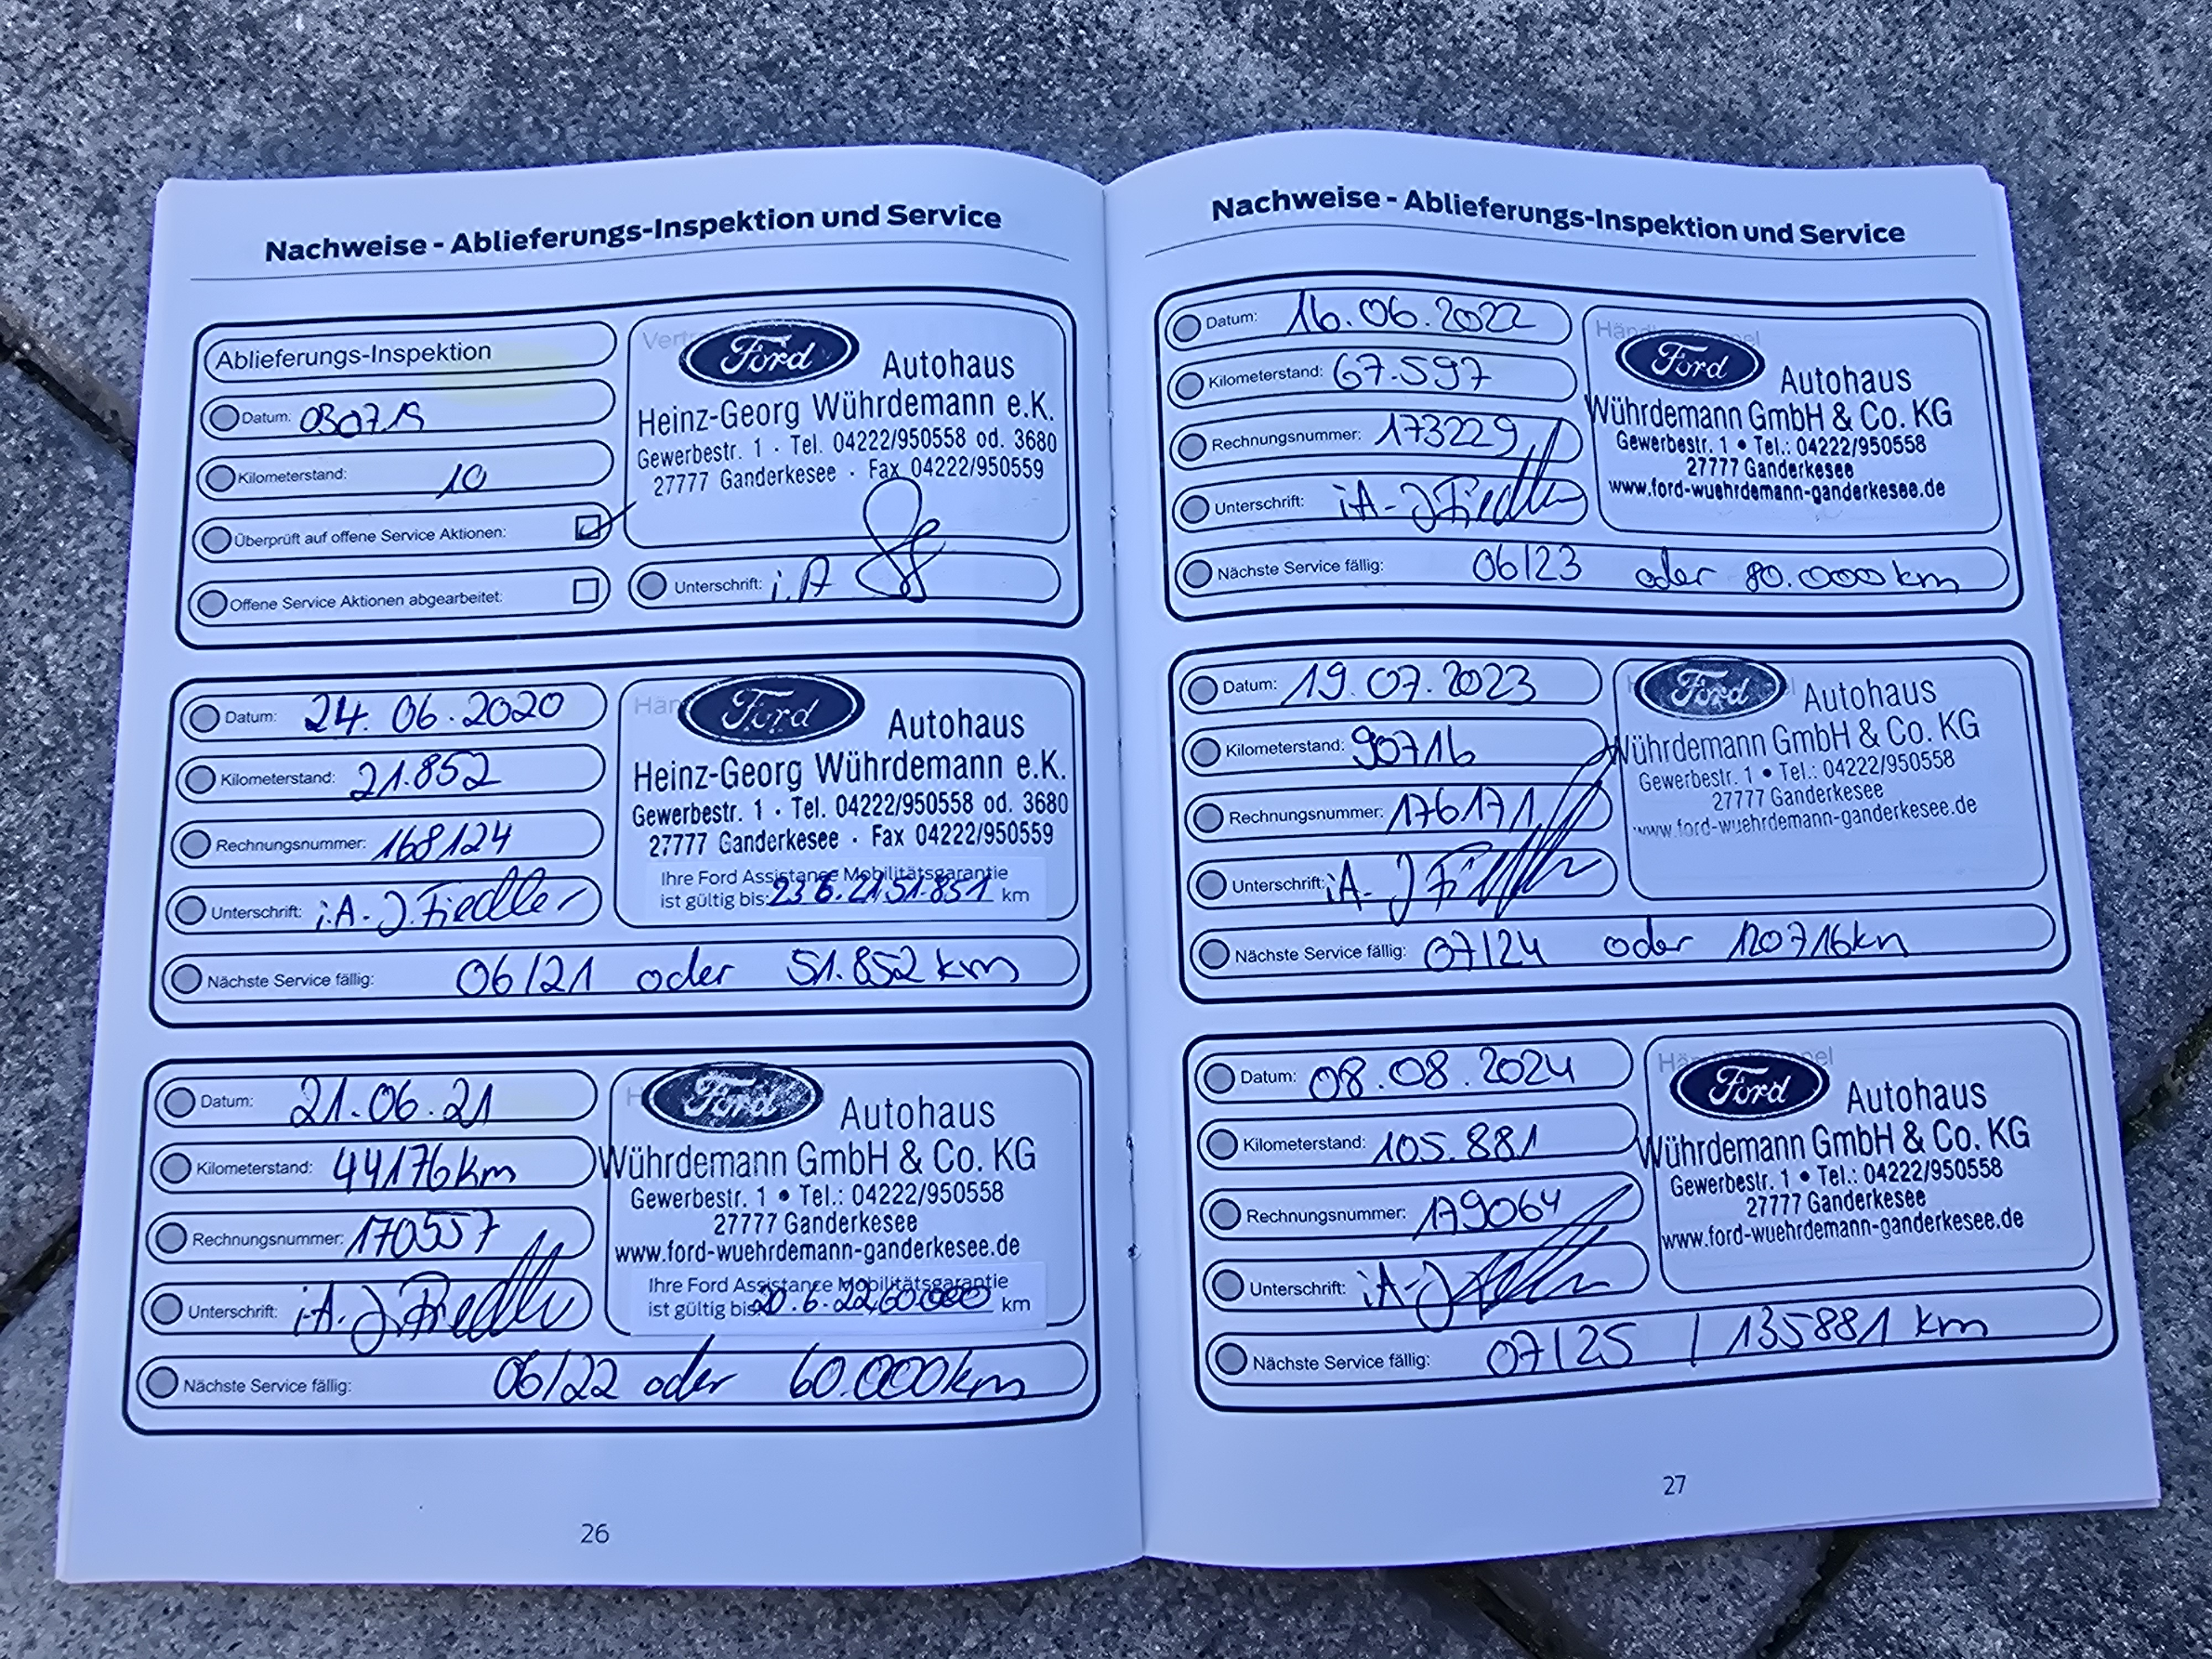 Nachweise - Ablieferungs-Inspektion und Service
Ablieferungs-Inspektion
Datum: 030719
Kilometerstand: 10
Überprüft auf offene Service Aktionen:
Offene Service Aktionen abgearbeitet:
Ford Autohaus
Heinz-Georg Wührdemann e.K.
Gewerbestr. 1 · Tel. 04222/950558 od. 3680
27777 Ganderkesee · Fax 04222/950559
Unterschrift: i.A
Datum: 24.06.2020
Kilometerstand: 21.852
Rechnungsnummer: 168124
Unterschrift: i.A. J. Fiedler
Ford Autohaus
Heinz-Georg Wührdemann e.K.
Gewerbestr. 1 · Tel. 04222/950558 od. 3680
27777 Ganderkesee · Fax 04222/950559
Ihre Ford Assistance Mobilitätsgarantie
ist gültig bis: 23.6.21, 51.851 km
Nächste Service fällig: 06/21 oder 51.852 km
Datum: 21.06.21
Kilometerstand: 44176km
Rechnungsnummer: 170557
Unterschrift: i.A. J. Fiedler
Ford Autohaus
Wührdemann GmbH & Co. KG
Gewerbestr. 1 • Tel.: 04222/950558
27777 Ganderkesee
www.ford-wuehrdemann-ganderkesee.de
Ihre Ford Assistance Mobilitätsgarantie
ist gültig bis: 20.6.22, 60.000 km
Nächste Service fällig: 06/22 oder 60.000km
26
Nachweise - Ablieferungs-Inspektion und Service
Datum: 16.06.2022
Kilometerstand: 67.597
Rechnungsnummer: 173229
Unterschrift: i.A. J Fiedler
Ford Autohaus
Wührdemann GmbH & Co. KG
Gewerbestr. 1 • Tel.: 04222/950558
27777 Ganderkesee
www.ford-wuehrdemann-ganderkesee.de
Nächste Service fällig: 06/23 oder 80.000km
Datum: 19.07.2023
Kilometerstand: 90716
Rechnungsnummer: 176171
Unterschrift: i.A. J Fiedler
Ford Autohaus
Wührdemann GmbH & Co. KG
Gewerbestr. 1 • Tel.: 04222/950558
27777 Ganderkesee
www.ford-wuehrdemann-ganderkesee.de
Nächste Service fällig: 07/24 oder 120716km
Datum: 08.08.2024
Kilometerstand: 105.881
Rechnungsnummer: 179064
Unterschrift: i.A. J
Ford Autohaus
Wührdemann GmbH & Co. KG
Gewerbestr. 1 • Tel.: 04222/950558
27777 Ganderkesee
www.ford-wuehrdemann-ganderkesee.de
Nächste Service fällig: 07/25 / 135881 km
27